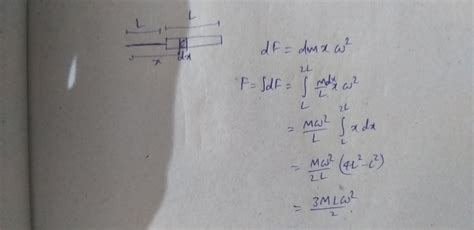 L L
x dx
dF = dm x ω²
F = ∫dF = ∫_L^{2L} m/L dx x ω²
= Mω²/L ∫_L^{2L} x dx
= Mω²/2L (4L² - L²)
= 3MLω²/2